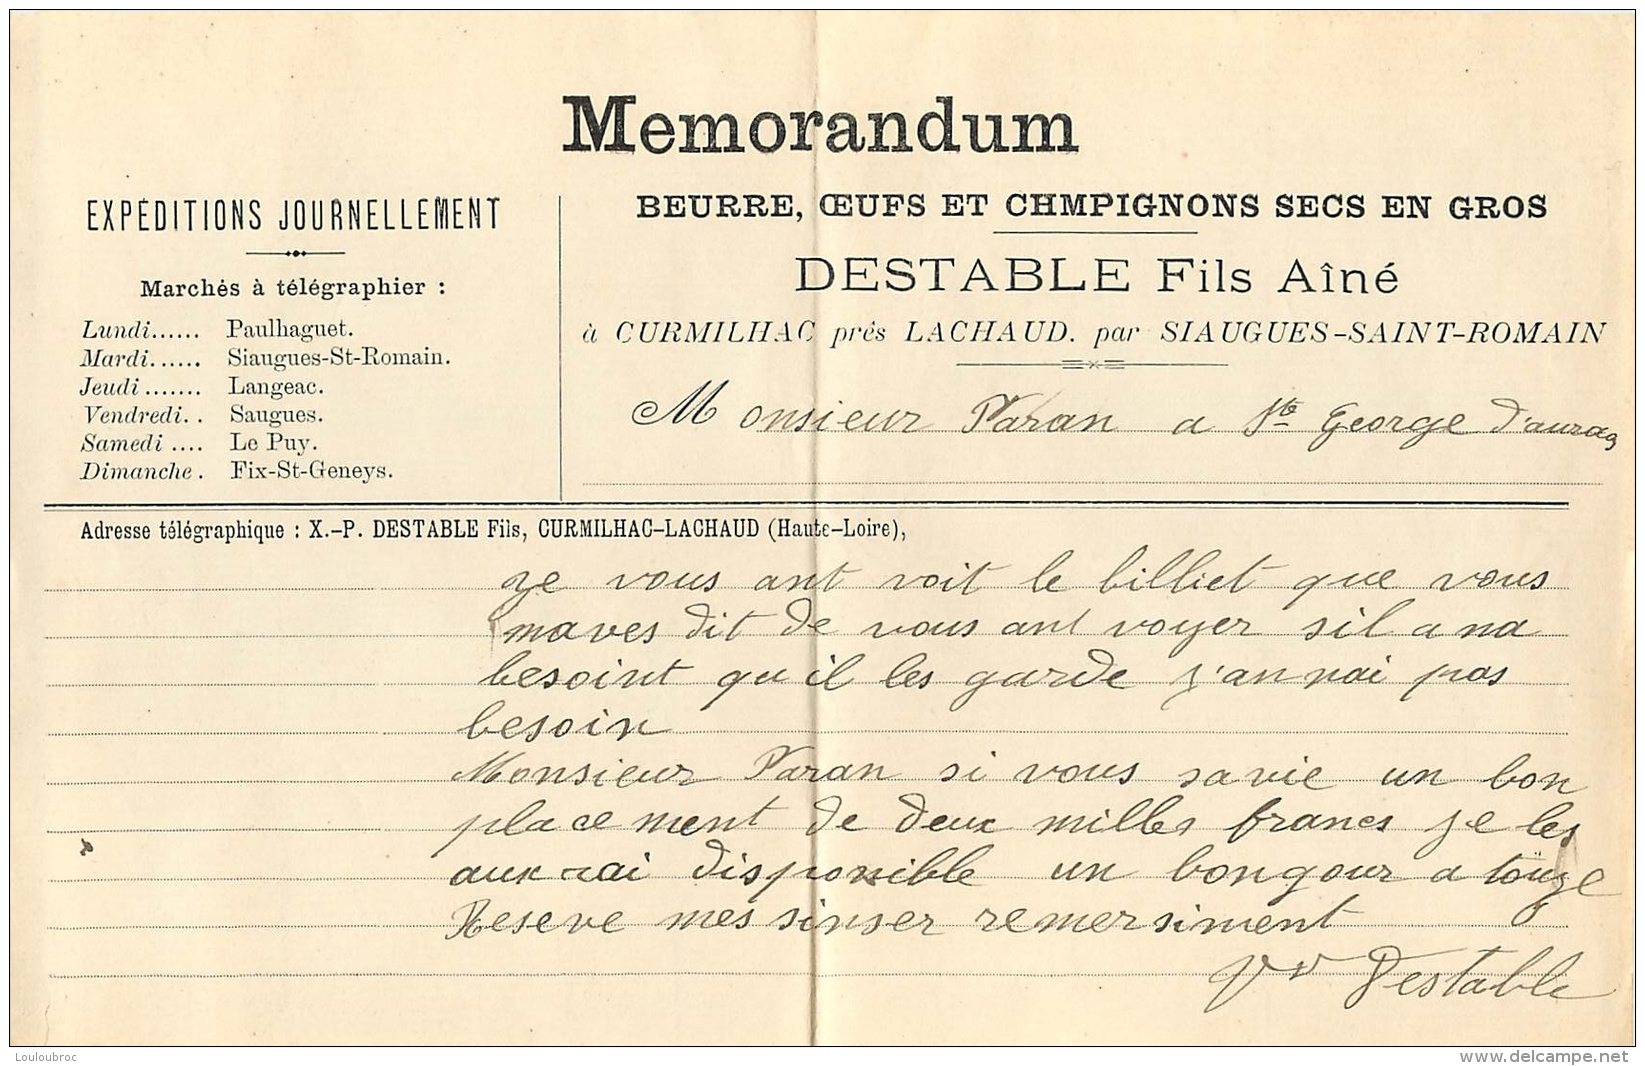 Memorandum
EXPÉDITIONS JOURNELLEMENT
Marchés à télégraphier :
Lundi...... Paulhaguet.
Mardi...... Siaugues-St-Romain.
Jeudi ....... Langeac.
Vendredi. . Saugues.
Samedi .... Le Puy.
Dimanche . Fix-St-Geneys.
BEURRE, ŒUFS ET CHMPIGNONS SECS EN GROS
DESTABLE Fils Aîné
à CURMILHAC prés LACHAUD. par SIAUGUES-SAINT-ROMAIN
Monsieur Varan a Ste George d'aurag
Adresse télégraphique : X.-P. DESTABLE Fils, CURMILHAC-LACHAUD (Haute-Loire),
ge vous ant voit le billiet que vous
maves dit de vous ant voyer sil a na
besoint qu il les garde j'an nai pas
besoin
Monsieur Varan si vous savie un bon
place ment de deux milles francs je les
aux rai disponible un bongour a touge
Reseve mes sinser remersiment
Vv Destable
Louloubroc
www.delcampe.net